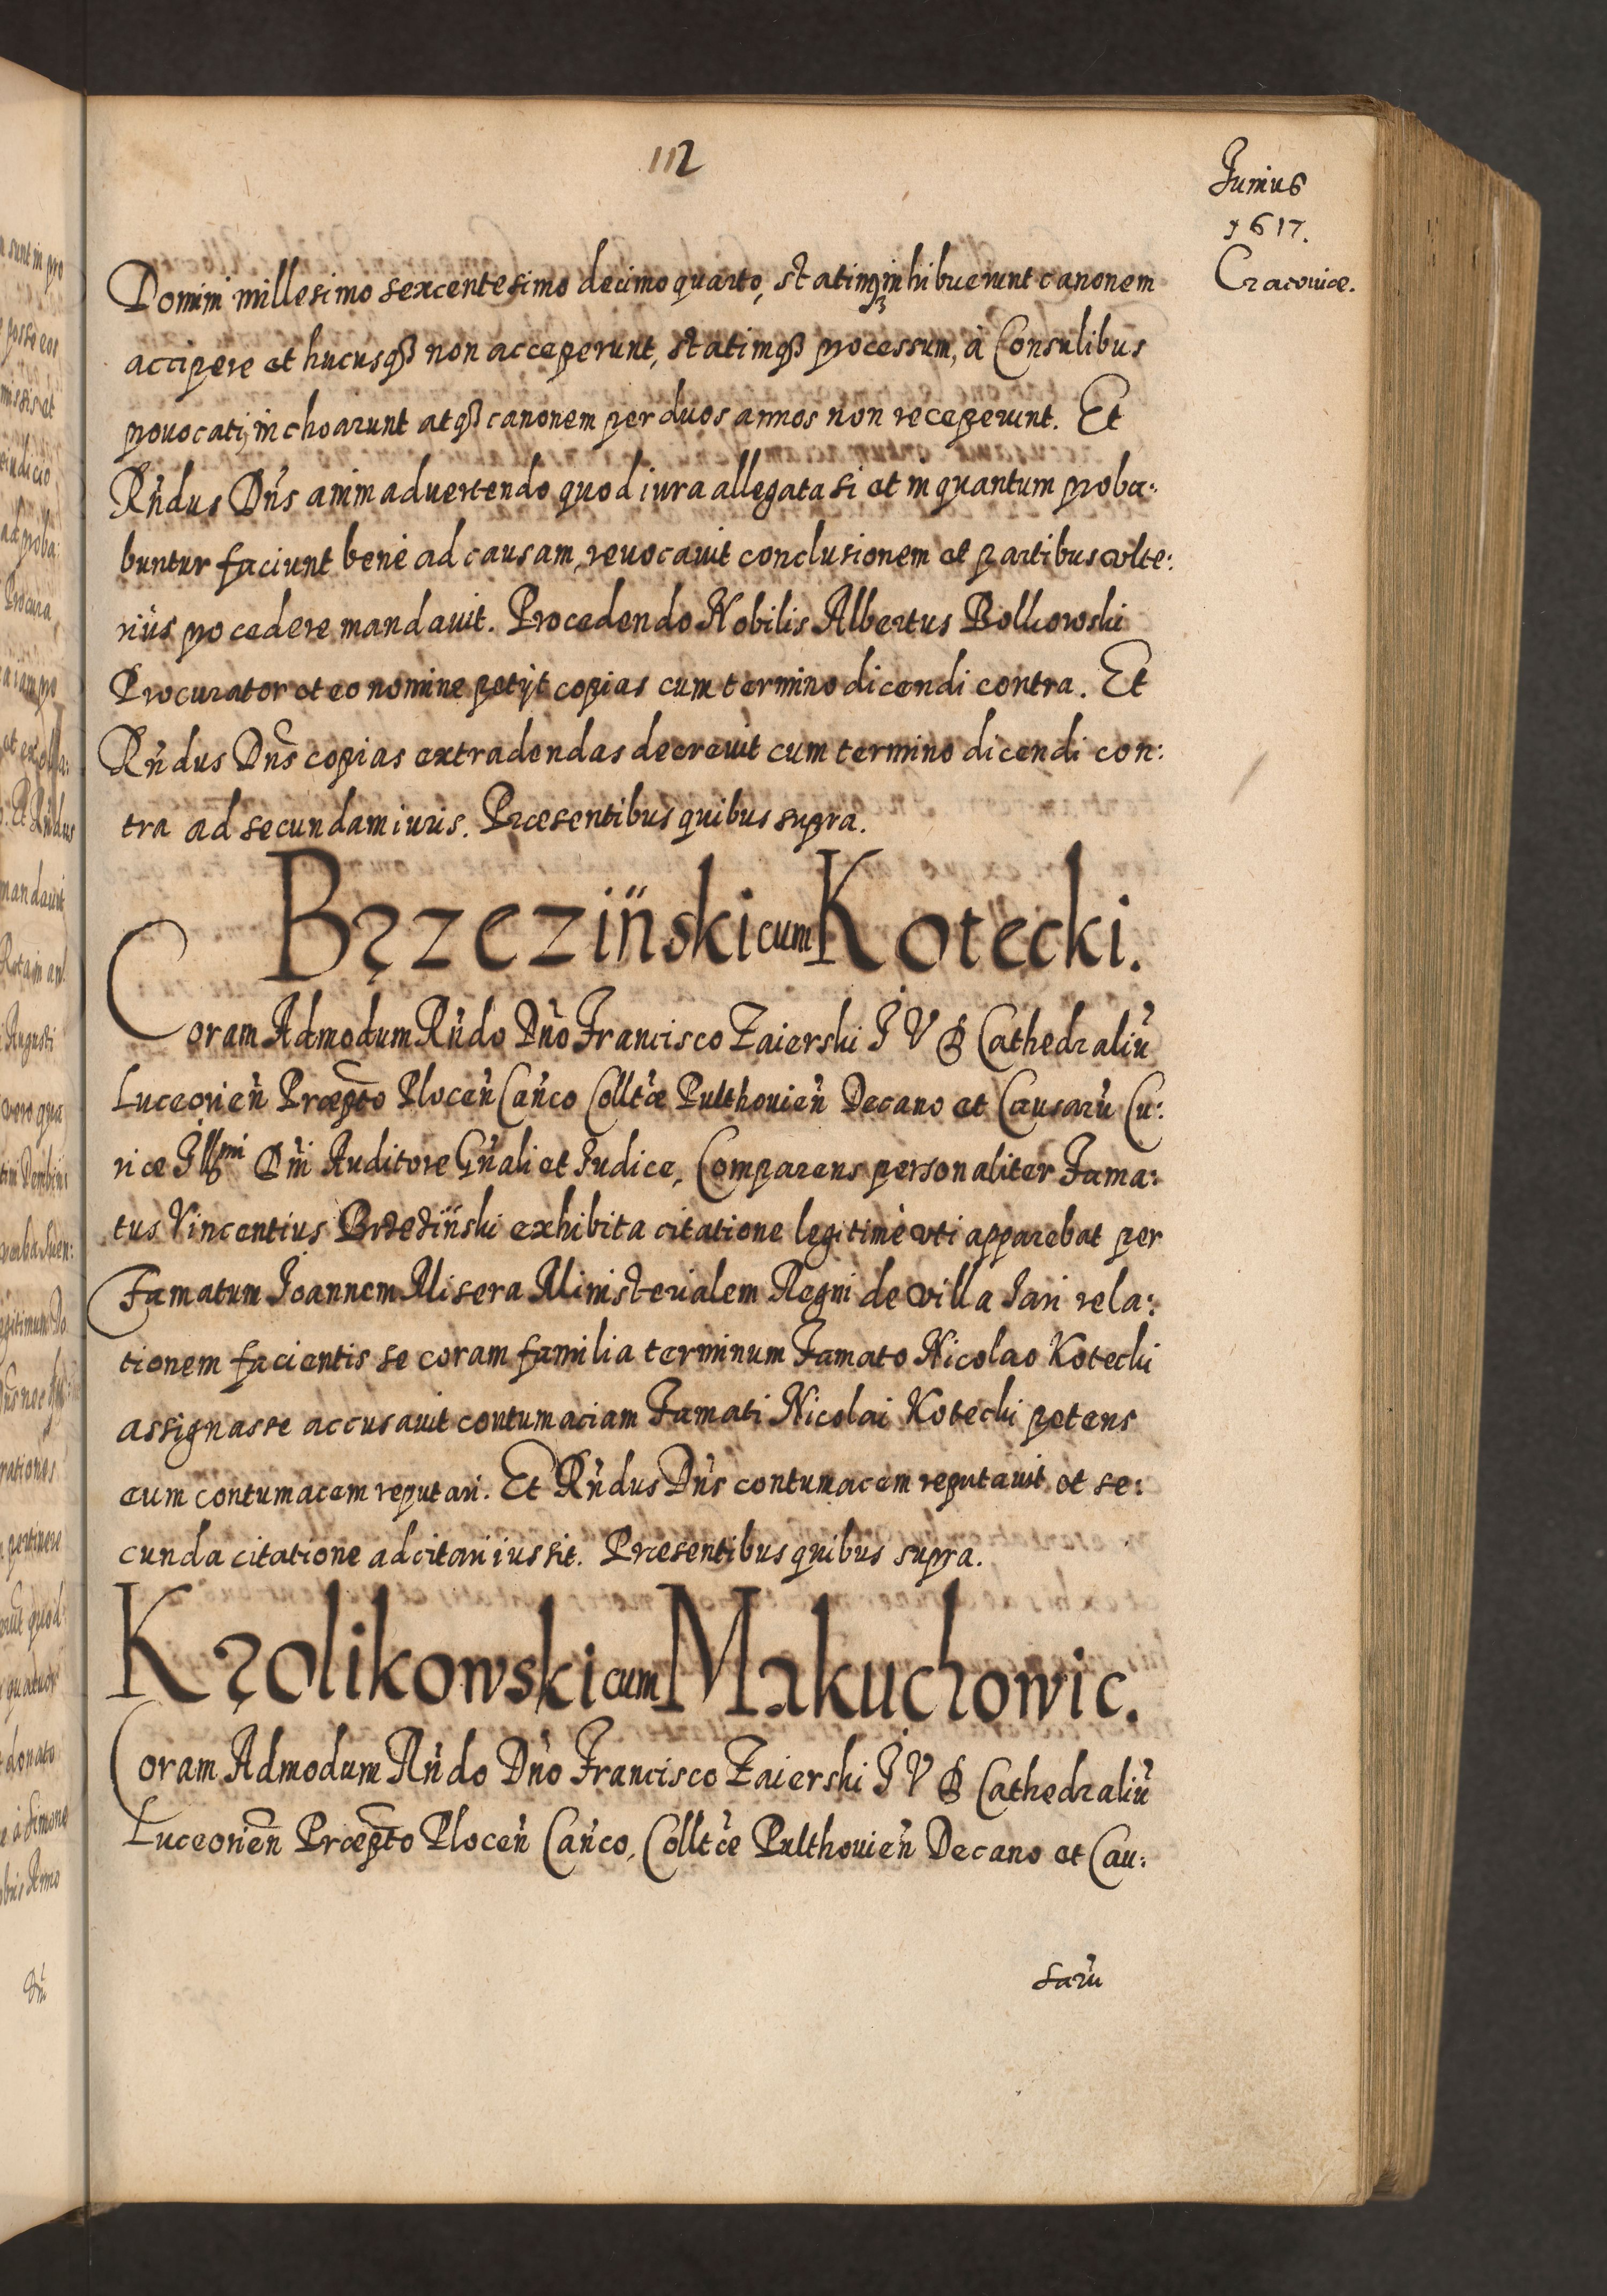 112
Junius
1617.
Cracoviæ.
Domini millesimo sexcentesimo decimo quarto, statimqȝ inhibuerunt canonem
accipere et hucusqȝ non acceperunt, statimqȝ processum, à Consulibus
provocati, inchoarunt atqȝ canonem per duos annos non receperunt. Et
Rńdus Dńs animadvertendo quod iura allegata si et in quantum proba:
buntur faciunt bene ad causam, revocavit conclusionem et partibus vlte:
rius procedere mandavit. Procedendo Nobilis Albertus Bolkowski
Procurator et eo nomine petijt copias cum termino dicendi contra. Et
Rńdus Dńs copias extradendas decrevit cum termino dicendi con:
tra ad secundam iuris. Præsentibus quibus supra.
Brzeziński cum Kotecki.
Coram Admodum Rńdo Dńo Francisco Zaierski J V D Cathedraliū
Luceorień Præpto Ploceń Cańco Colltæ Pulthovień Decano et Causarū Cu:
riæ Illmi Dńi Auditore Gńali et Iudice, Comparens personaliter Fama:
tus Vincentius Brzeziński exhibita citatione legitimè vti apparebat per
Famatum Joannem Misera Ministerialem Regni de villa Jari rela:
tionem facientis se coram familia terminum Famato Nicolao Kotecki
assignasse accusavit contumaciam Famati Nicolai Kotecki petens
eum contumacem reputari. Et Rńdus Dńs contumacem reputavit et se:
cunda citatione adcitari iussit. Præsentibus quibus supra.
Krolikowski cum Mrkuchowic.
Coram Admodum Rńdo Dńo Francisco Zaierski J V D Cathedraliū
Luceorień Præpto Ploceń Cańco, Colltæ Pulthovień Decano et Cau:
sarū